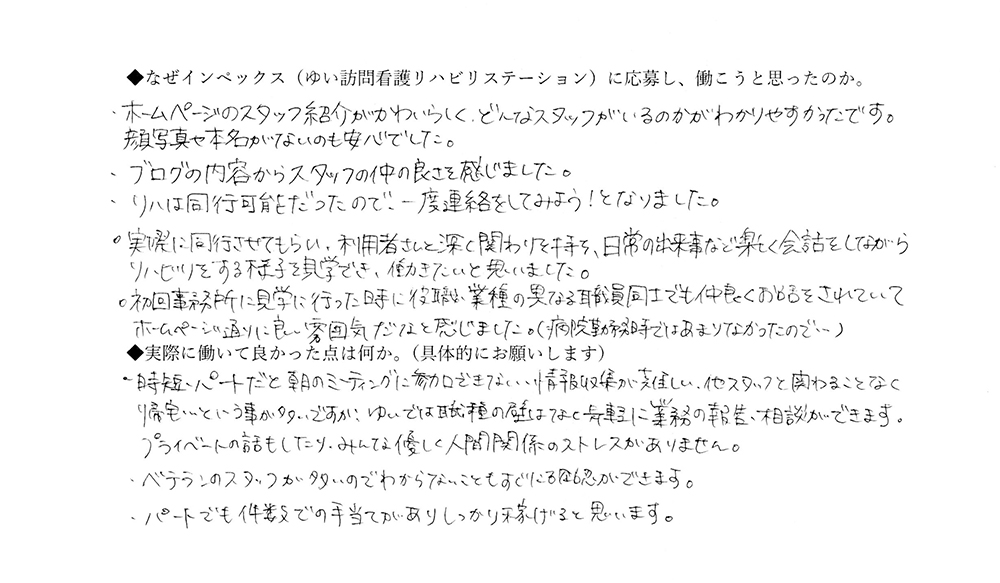 ◆なぜインペックス（ゆい訪問看護リハビリステーション）に応募し、働こうと思ったのか。
・ホームページのスタッフ紹介がかわいらしく、どんなスタッフがいるのかがわかりやすかったです。
顔写真や本名がないのも安心でした。
・ブログの内容からスタッフの仲の良さを感じました。
・リハは同行可能だったので、一度連絡をしてみよう！となりました。
○実際に同行させてもらい、利用者さんと深く関わりを持ち、日常の出来事など楽しく会話をしながら
リハビリをする様子を見学でき、働きたいと思いました。
○初回事務所に見学に行った時に役職、業種の異なる職員同士でも仲良くお話をされていて
ホームページ通りに良い雰囲気だなと感じました。(病院勤務時ではあまりなかったので…)
◆実際に働いて良かった点は何か。（具体的にお願いします）
・時短・パートだと朝のミーティングに参加できない、情報収集が難しい、他スタッフと関わることなく
帰宅…という事が多いですが、ゆいでは職種の壁はなく気軽に業務の報告、相談ができます。
プライベートの話もしたり、みんな優しく人間関係のストレスがありません。
・ベテランのスタッフが多いのでわからないこともすぐに確認ができます。
・パートでも件数での手当てがありしっかり稼げると思います。